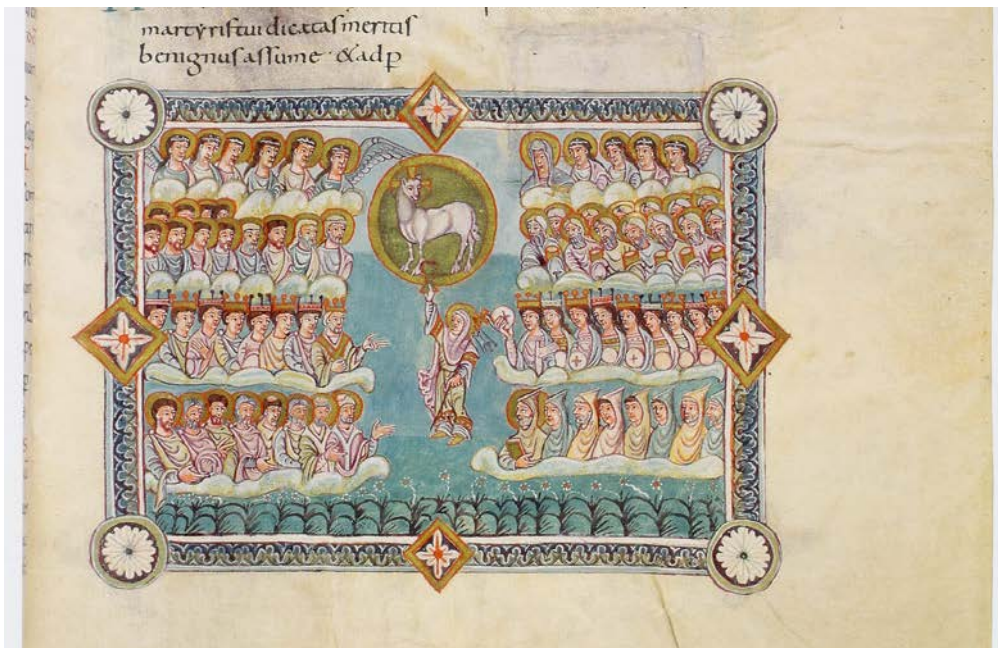 martyris tui dicatas meritis
benignus assume · & ad p